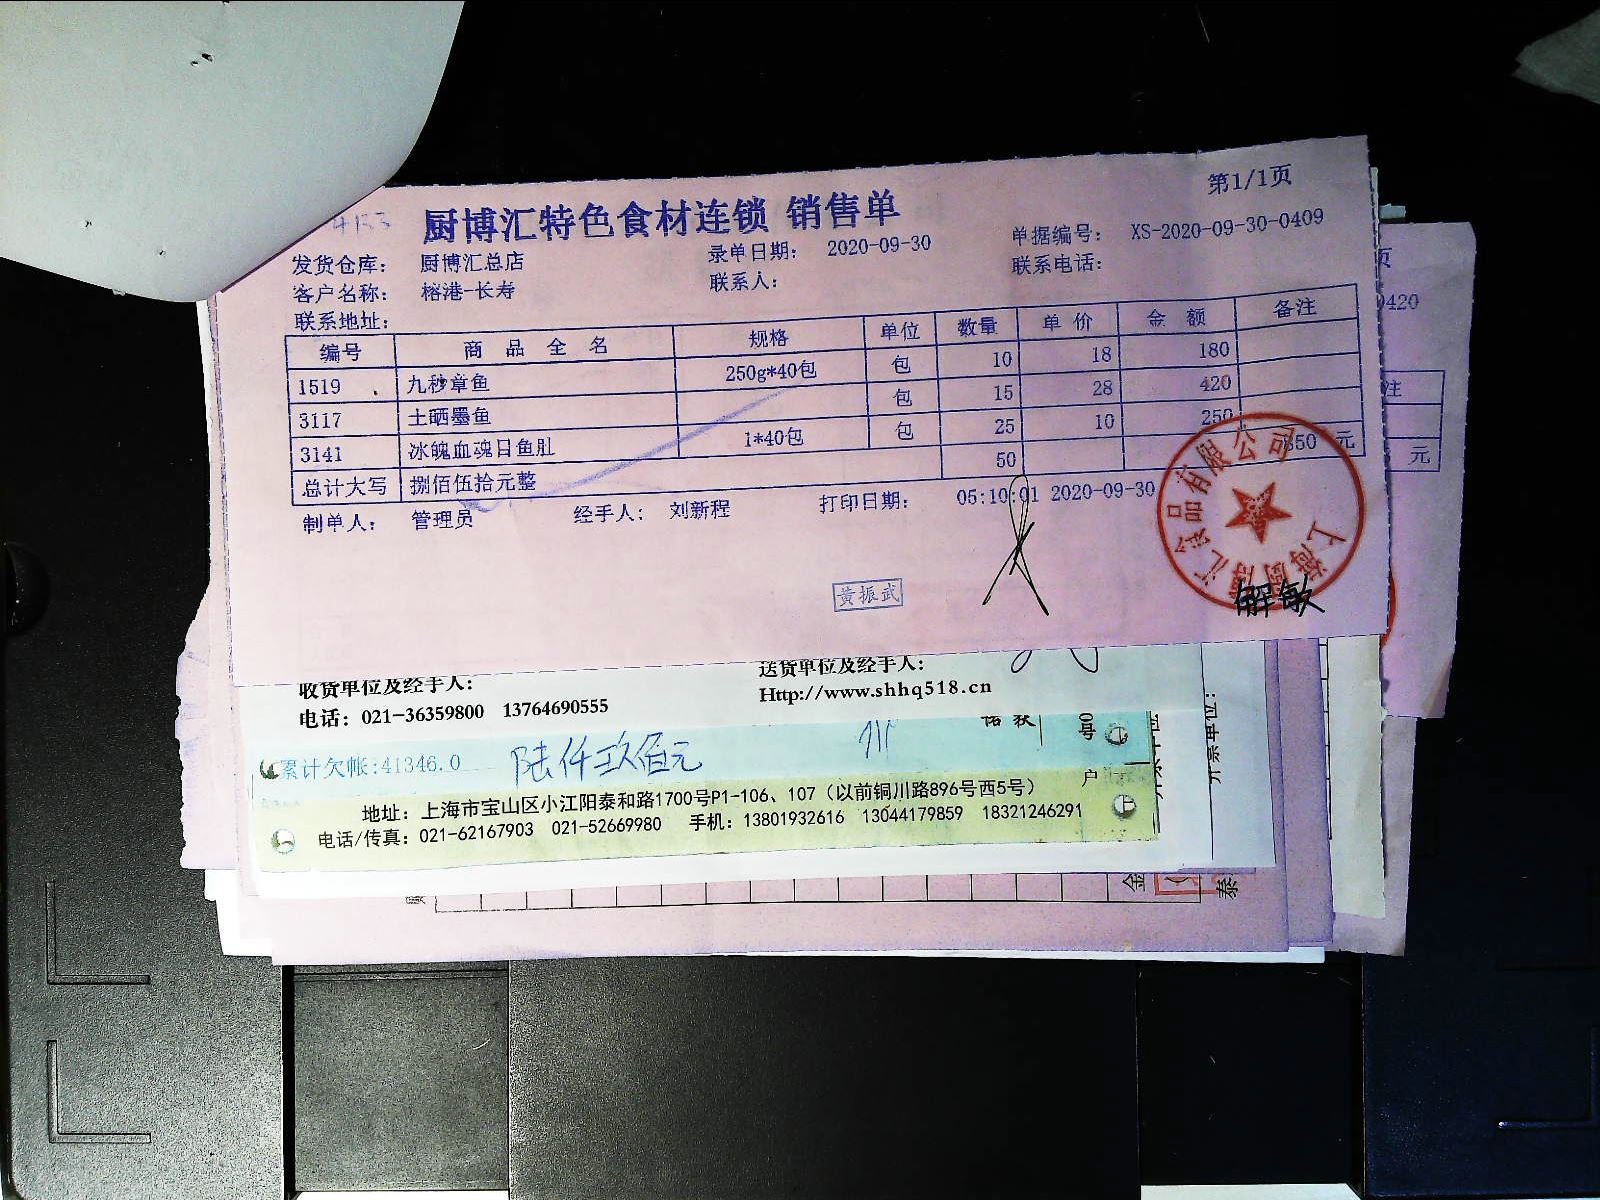 第1/1页
厨博汇特色食材连锁 销售单
发货仓库: 厨博汇总店 录单日期: 2020-09-30 单据编号: XS-2020-09-30-0409
客户名称: 榕港-长寿 联系人: 联系电话:
联系地址:
编号 商品全名 规格 单位 数量 单价 金额 备注
1519 九秒章鱼 250g*40包 包 10 18 180
3117 土晒墨鱼 包 15 28 420
3141 冰魄血魂目鱼肚 1*40包 包 25 10 250
总计大写 捌佰伍拾元整 50 850 元
制单人: 管理员 经手人: 刘新程 打印日期: 05:10:01 2020-09-30
黄振武
解敏
页
0420
注
元
收货单位及经手人: 送货单位及经手人:
电话: 021-36359800 13764690555 Http://www.shhq518.cn
累计欠帐:41346.0 陆仟玖佰元
号
户
地址: 上海市宝山区小江阳泰和路1700号P1-106、107（以前铜川路896号西5号）
电话/传真: 021-62167903 021-52669980 手机: 13801932616 13044179859 18321246291
开票单位:
金
泰